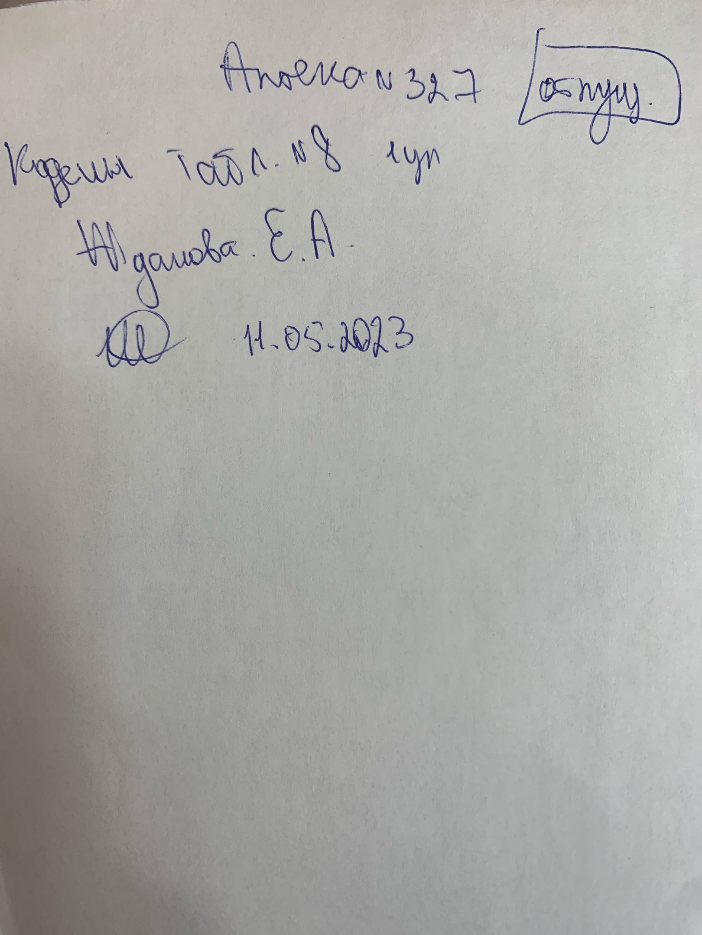 Аптека N 327 отпущ.
Коделы табл. N8 1уп
Жданова. Е.А.
11.05.2023